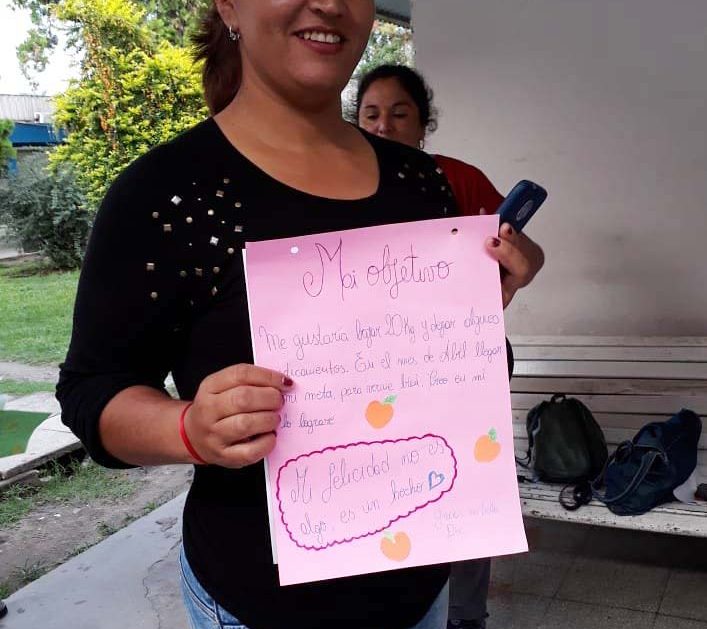 Mi objetivo
Me gustaría bajar 20Kg y dejar algunos
dicamentos. En el mes de Abil llegar
mi meta, para verme bien. Creo en mi
lo lograre
Mi felicidad no es
algo, es un hecho